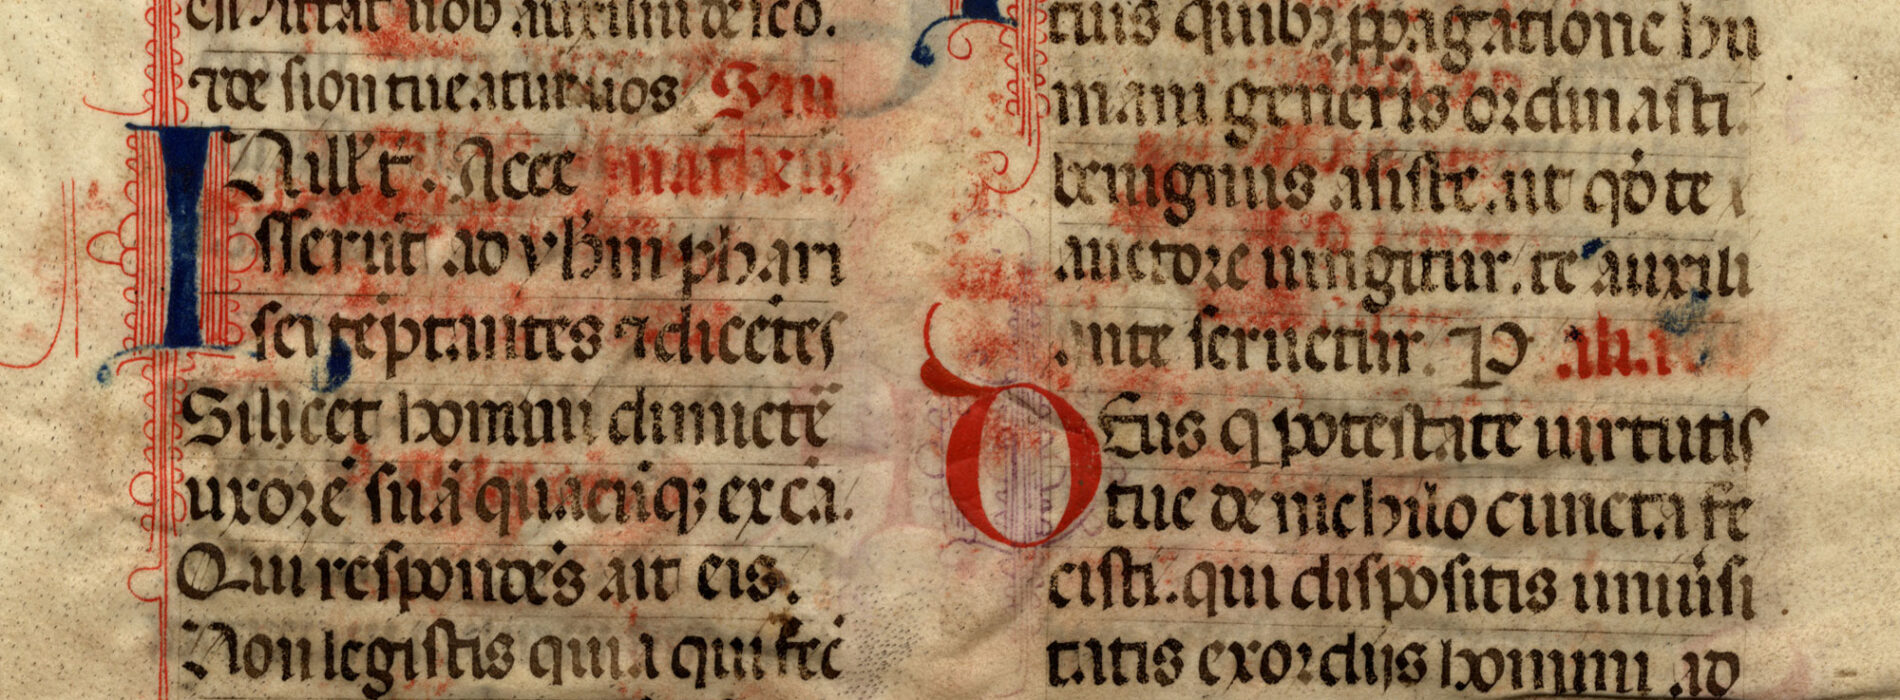 mittat uob auxiliū de sco.
⁊ de sion tueatur uos
IN ill̕ t̕. Acce matheū
sserūt ad yh̄m phari
sei tēptantes ⁊ dicētes
Si licet homini dimictē
uxorē suā quacūq; ex cā.
Qui respondēs ait eis.
Non legistis quia qui fec̄
tuis quibꝫ ppagatione hu
mani generis ordinasti.
benignus asiste. ut q̄ te
auctore iungitur. te auxili
ante seruetur. P alia
DEus q potestate uirtutis
tue de nichilo cuncta fe
cisti. qui dispositis uniūsi
tatis exordijs homini ad